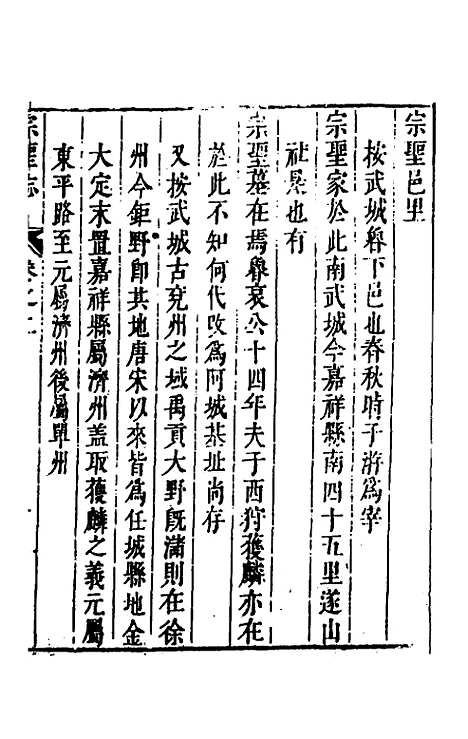 宗聖邑里
按武城魯下邑也春秋時子游為宰
宗聖家於此南武城今嘉祥縣南四十五里遂山
社是也有
宗聖墓在焉魯哀公十四年夫子西狩獲麟亦在
於此不知何代改為阿城基址尚存
又按武城古兗州之域禹貢大野既瀦則在徐
州今鉅野即其地唐宋以來皆為任城縣地金
大定末置嘉祥縣屬濟州盖取獲麟之義元屬
東平路至元屬濟州後屬單州
宗聖志
卷之二